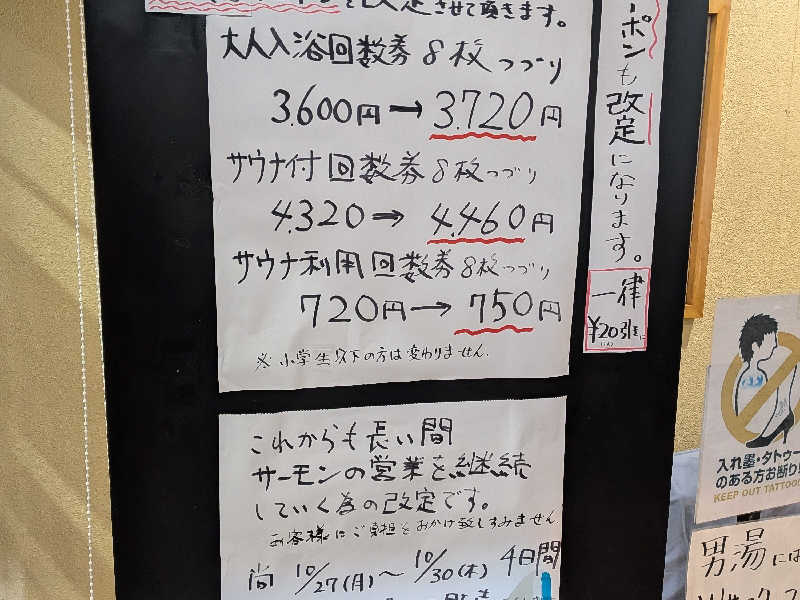 を改定させて頂きます。
大人入浴回数券 8枚つづり
3.600円→3.720円
サウナ付回数券 8枚つづり
4.320⇒4.460円
サウナ利用回数券 8枚つづり
720円→750円
※小学生以下の方は変わりません.
ーポンも改定になります。
一律
¥20引き
これからも長い間
サーモンの営業を継続
していく為の改定です。
お客様にご負担をおかけ致しすみません
尚 10/27(月)〜10/30(木) 4日間
入れ墨・タトゥー
のある方お断り!
KEEP OUT TATTOO
男湯には